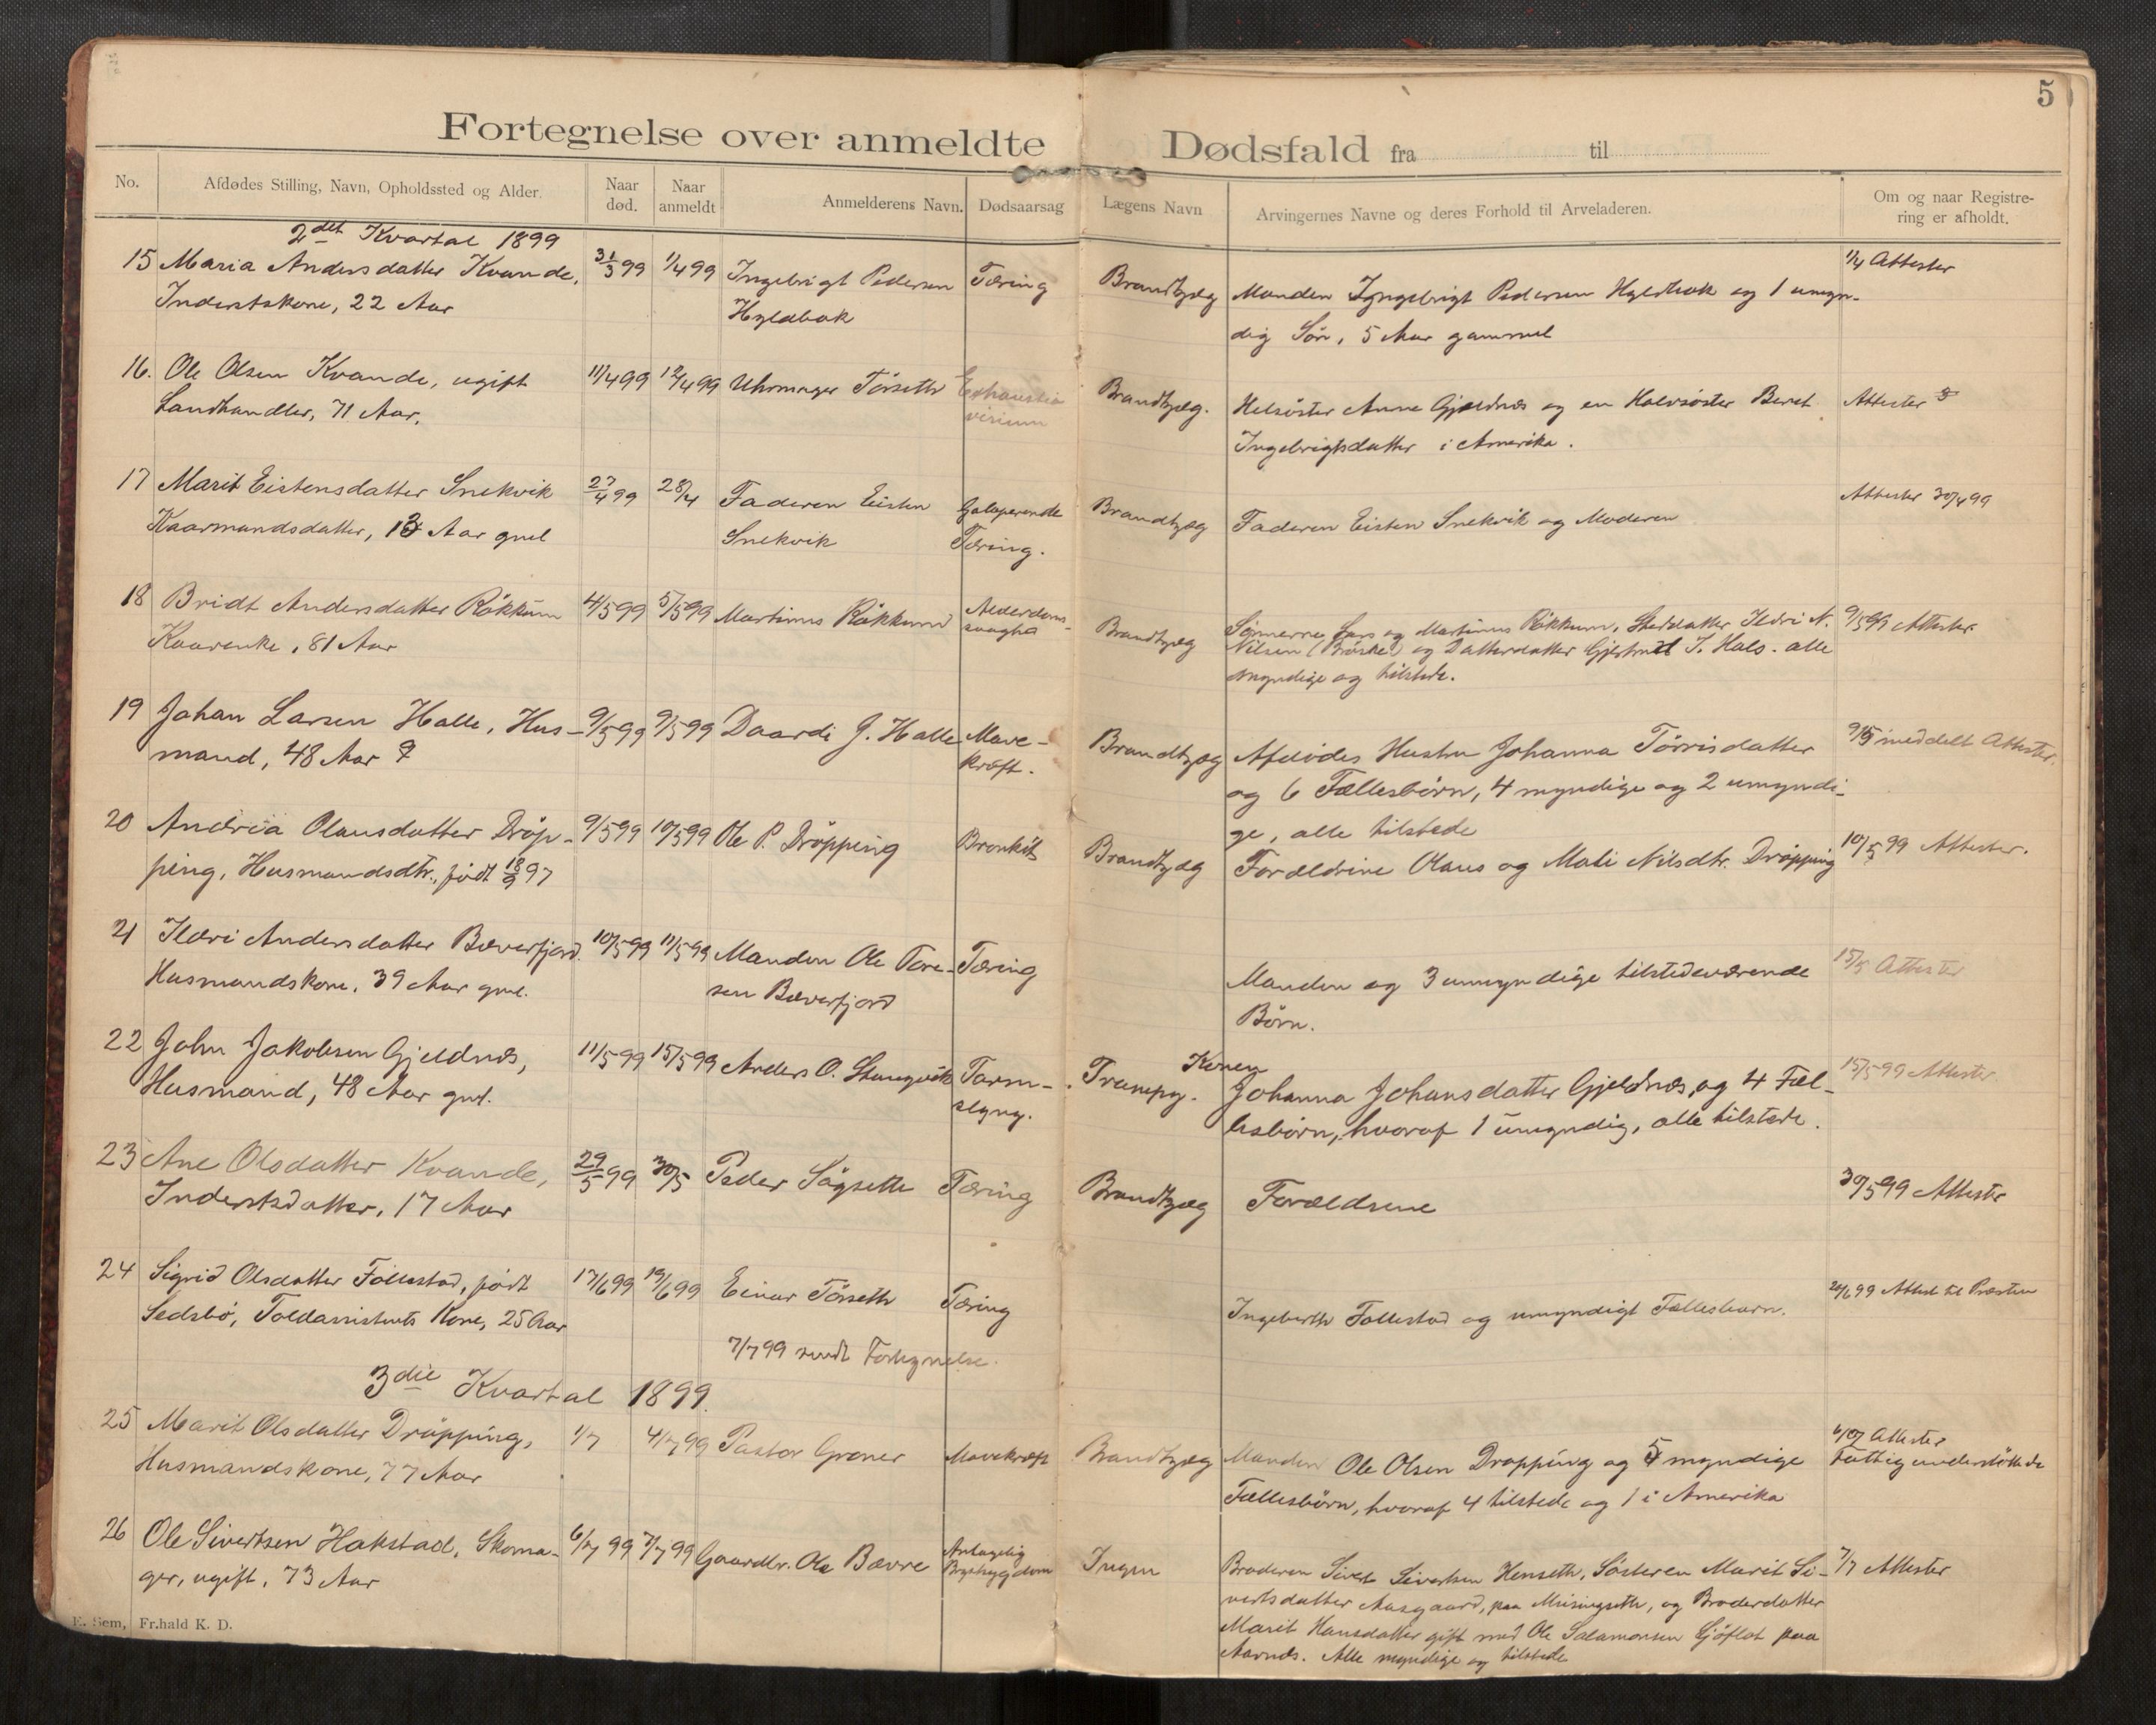 5
Fortegnelse over anmeldte Dødsfald fra til
No. Afdødes Stilling, Navn, Opholdssted og Alder. Naar død. Naar anmeldt Anmelderens Navn. Dødsaarsag Lægens Navn Arvingernes Navne og deres Forhold til Arveladeren. Om og naar Registrering er afholdt.
2det Kvartal 1899
15 Maria Andersdatter Kvande, 31/3 99 1/4 99 Ingebrigt Pedersen Tæring Brandtzæg Manden Ingebrigt Pedersen Hyldbak og 1 umyn- 1/4 Attester
Inderstskone, 22 Aar Hyldbak dig Søn, 5 Aar gammel
16. Ole Olsen Kvande, ugift 11/4 99 12/4 99 Uhrmager Törseth Exhaustio Brandtzæg. Helsøster Anne Gjeldnæs og en Halvsøster Beret Attester
Landhandler, 71 Aar. virium Ingebrigtsdatter i Amerika.
17 Marit Eistensdatter Snekvik 27/4 99 28/4 Faderen Eisten Galoperende Brandtzæg Faderen Eisten Snekvik og Moderen Attester 30/4 99
Kaarmandsdatter, Aar gml Snekvik Tæring.
18 Bridt Andersdatter Rökkum 4/5 99 5/5 99 Martinus Rökkum Alderdoms- Brandtzæg Sønnerne Lars og Martinus Rökkum, Ildri N. 9/5 99 Attester
Kaarenke, 81 Aar svaghed Nilsen og Datterdatter Gjertrud J. Hals. alle
myndige og tilstede.
19 Johan Larsen Halle, Hus- 9/5 99 9/5 99 Daardi J. Halle Mave- Brandtzæg Afdødes Hustru Johanna Törrisdatter 9/5 meddelt Attester.
mand, 48 Aar kræft. og 6 Fællesbørn, 4 myndige og 2 umyndi-
ge, alle tilstede
20 Andrea Olausdatter Dröp- 9/5 99 10/5 99 Ole P. Dröpping Bronkit Brandtzæg Forældrene Olaus og Mali Nilsdtr. Dröpping 10/5 99 Attester.
ping, Husmandsdtr., født 18/9 97
21 Ildri Andersdatter Bæverfjord. 10/5 99 11/5 99 Manden Ole Tore- Tæring Manden og 3 umyndige tilstedeværende 15/5 Attester
Husmandskone. 39 Aar gml. sen Bæverfjord Børn.
22 John Jakobsen Gjeldnæs, 11/5 99 15/5 99 Anders O. Stangvik Tarm- Trampy. Konen Johanna Johansdatter Gjeldnæs, og 4 Fæl- 15/5 99 Attester
Husmand, 48 Aar gml. slyng. lesbørn, hvoraf 1 umyndig, alle tilstede.
23 Ane Olsdatter Kvande, 29/5 99 30/5 Peder Sögseth Tæring Brandtzæg Forældrene 30/5 99 Attester
Inderstsdatter, 17 Aar
24 Sigrid Olsdatter Follestad, født 17/6 99 19/6 99 Einar Törseth Tæring Ingebreth Follestad og umyndigt Fællesbarn. 20/6 99 Attest til Præsten
Sedsbö, Toldassistents Kone, 25 Aar
7/7 99 sendt Fortegnelse.
3die Kvartal 1899.
25 Marit Olsdatter Dröpping, 1/7 4/7 99 Pastor Graner Mavekræft Brandtzæg Manden Ole Olsen Dröpping og 5 myndige Attester
Husmandskone, 77 Aar Fællesbørn, hvoraf 4 tilstede og 1 i Amerika Fattigunderstöttede
26 Ole Sivertsen Hakstad, Skoma- 6/7 99 7/7 99 Gaardbr. Ole Bævre Antagelig Ingen Broderen Sivert Sivertsen Henseth, Søsteren Marit Si- 7/7 Attester
ger, ugift, 73 Aar Brysthygdom vertsdatter Aasgaard, paa og Broderdatter
Marit Hansdatter gift med Ole Salamonsen Sjöflot paa
Aarnæs. Alle myndige og tilstede
E. Sem, Fr.hald K. D.